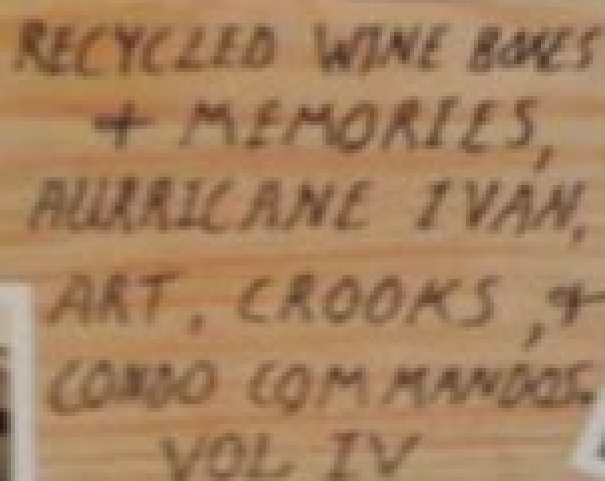 RECYCLED WINE BOXES
+ MEMORIES,
HURRICANE IVAN,
ART, CROOKS, +
CONDO COMMANDOS.
VOL IV